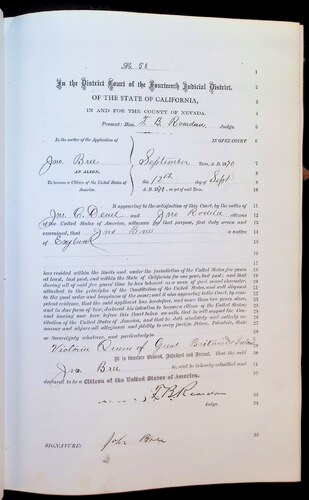 No. 56
1
In the District Court of the Fourteenth Judicial District, 2
OF THE STATE OF CALIFORNIA, 3
IN AND FOR THE COUNTY OF NEVADA. 4
Present: Hon. T. B. Reardan Judge. 5
In the matter of the Application of IN OPEN COURT 6
Jno. Bree September Term, A. D. 1870 7
AN ALIEN, 8
To become a Citizen of the United States of America. this 17th day of Sept 9
A. D. 1870, as yet of said Term. 10
It appearing to the satisfaction of this Court, by the oaths 11
of Jno. C. Deuel and citizens 12
of the United States of America, witnesses for that purpose, first duly sworn and 13
examined, that Jno Bree a native 14
of England 15
has resided within the limits and under the jurisdiction of the United States five years
at least, last past, and within the State of California for one year, last past; and that
during all of said five years' time he has behaved as a man of good moral character,
attached to the principles of the Constitution of the United States, and well disposed
to the good order and happiness of the same; and it also appearing to the Court, by competent evidence, that the said applicant has heretofore, and more than two years since,
and in due form of law, declared his intention to become a citizen of the United States
and having now here before this Court taken an oath, that he will support the Constitution of the United States of America, and that he doth absolutely and entirely renounce and abjure all allegiance and fidelity to every foreign Prince, Potentate, State
or Sovereignty whatever, and particularly to
Victoria Queen of Great Britain & Ireland
It is therefore Ordered, Adjudged and Decreed, that the said
Jno. Bree be, and he is hereby admitted and
declared to be a Citizen of the United States of America.
T. B. Reardan
Judge.
SIGNATURE: John Bree